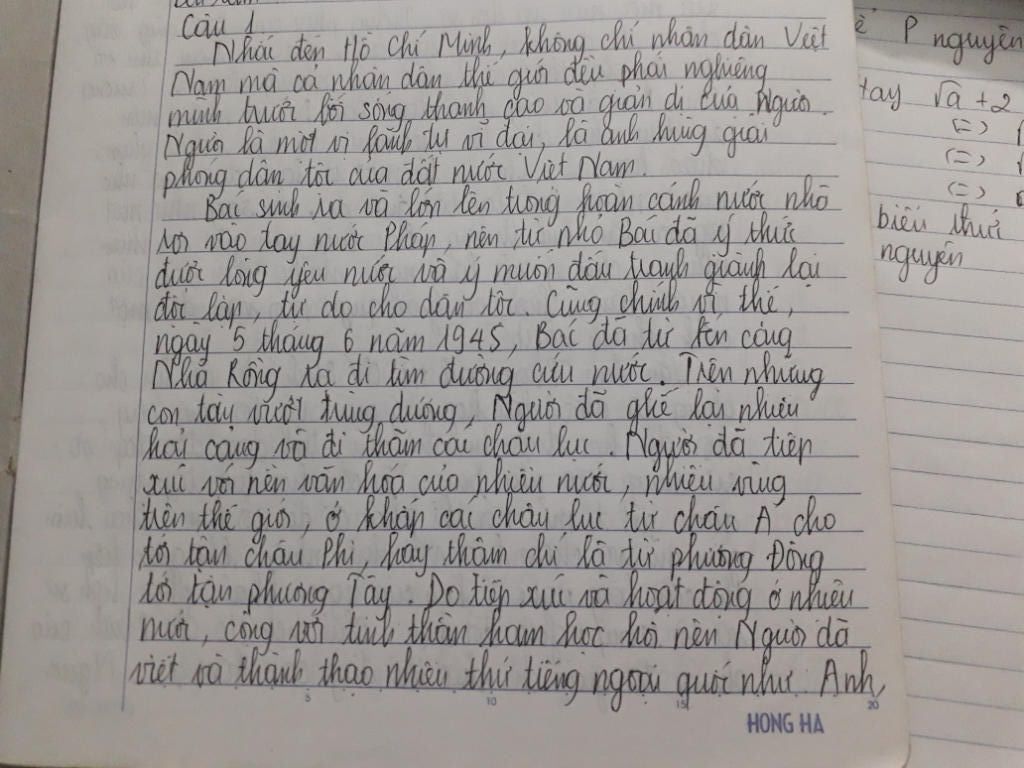 Câu 1
Nhắc đến Hồ Chí Minh, không chỉ nhân dân Việt
Nam mà cả nhân dân thế giới đều phải nghiêng
mình trước lối sống thanh cao và giản dị của Người.
Người là một vị lãnh tụ vĩ đại, là anh hùng giải
phóng dân tộc của đất nước Việt Nam.
Bác sinh ra và lớn lên trong hoàn cảnh nước nhà
rơi vào tay nước Pháp, nên từ nhỏ Bác đã ý thức
được lòng yêu nước và ý muốn đấu tranh giành lại
độc lập, tự do cho dân tộc. Cũng chính vì thế,
ngày 5 tháng 6 năm 1945, Bác đã từ bến cảng
Nhà Rồng ra đi tìm đường cứu nước. Trên những
con tàu vượt trùng dương, Người đã ghé lại nhiều
hải cảng và đi thăm các châu lục. Người đã tiếp
xúc với nền văn hoá của nhiều nước, nhiều vùng
trên thế giới, ở khắp các châu lục từ châu Á cho
tới tận châu Phi, hay thậm chí là từ phương Đông
tới tận phương Tây. Do tiếp xúc và hoạt động ở nhiều
nước, cộng với tinh thần ham học hỏi nên Người đã
viết và thành thạo nhiều thứ tiếng ngoại quốc như Anh,
5 10 15 20
HONG HA
P nguyên
tay √a + 2
(=)
(=)
(=)
biểu thức
nguyên